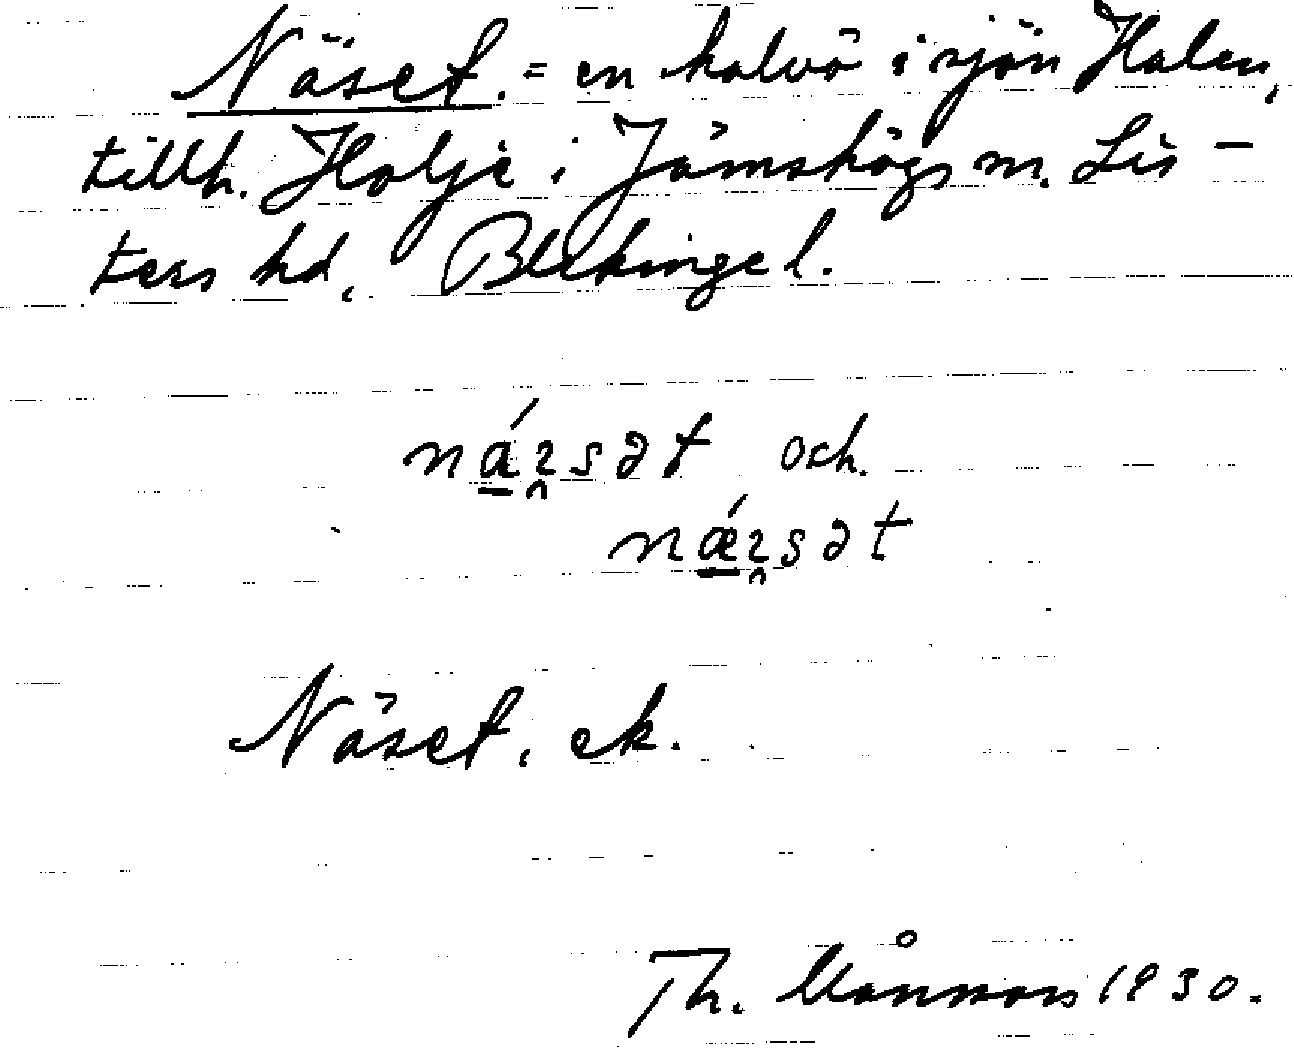 Näset. = en halvö i sjön Halen,
tillh. Holje i Jämshögs sn. Lis-
ters hd, Blekinge l.
ná̱ɪ̯sət och
nǽ̱ɪ̯sət
Näset, ek.
Th. Månsson 1930.